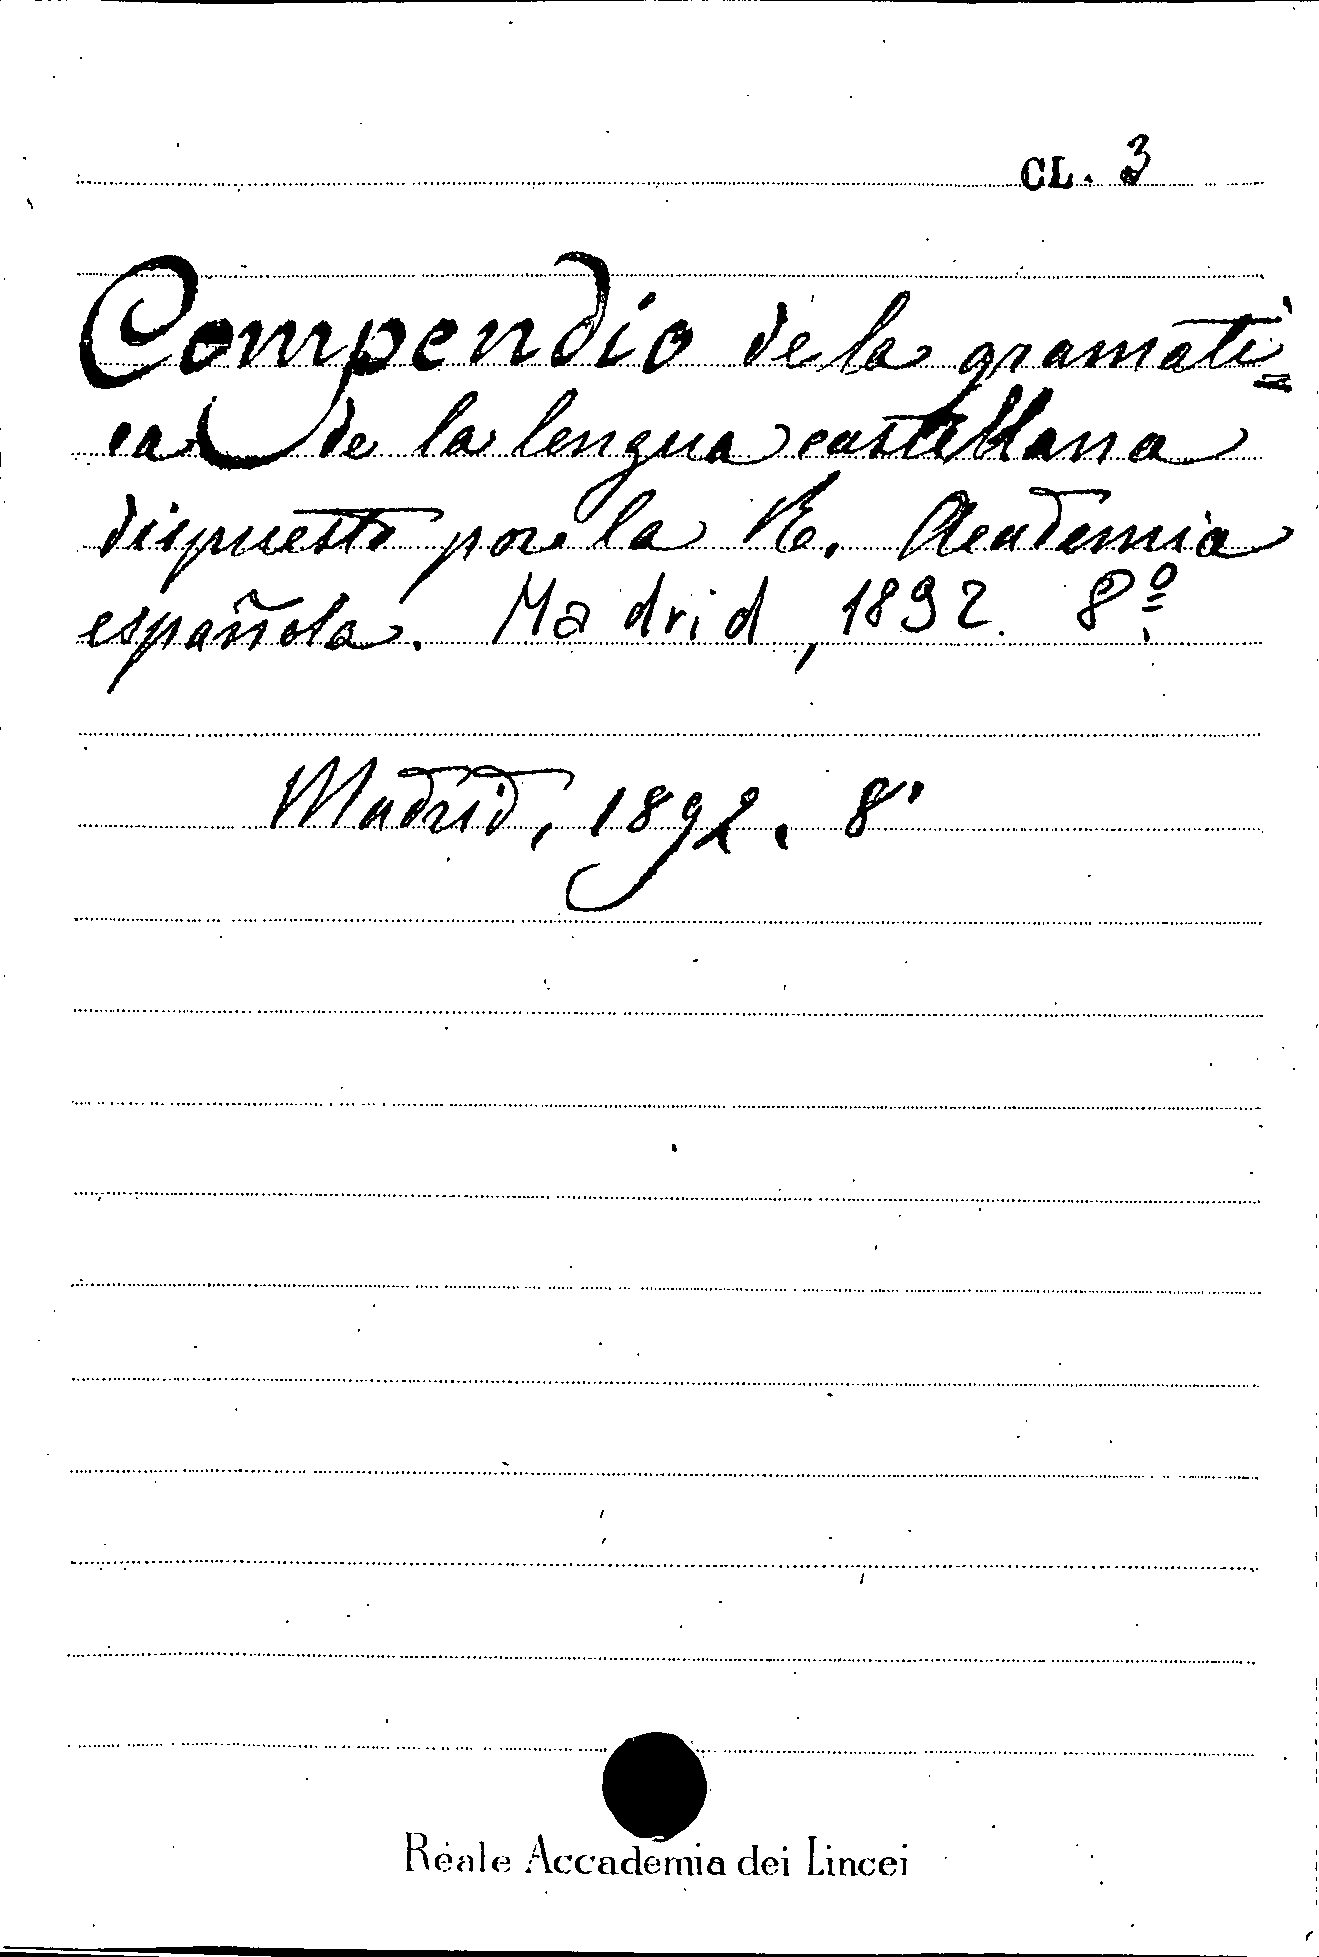 CL. 3
Compendio de la gramati=
ca de la lengua castellana
dispuesto por la R. Academia
española. Madrid, 1892. 8º
Madrid, 1892. 8°
Reale Accademia dei Lincei